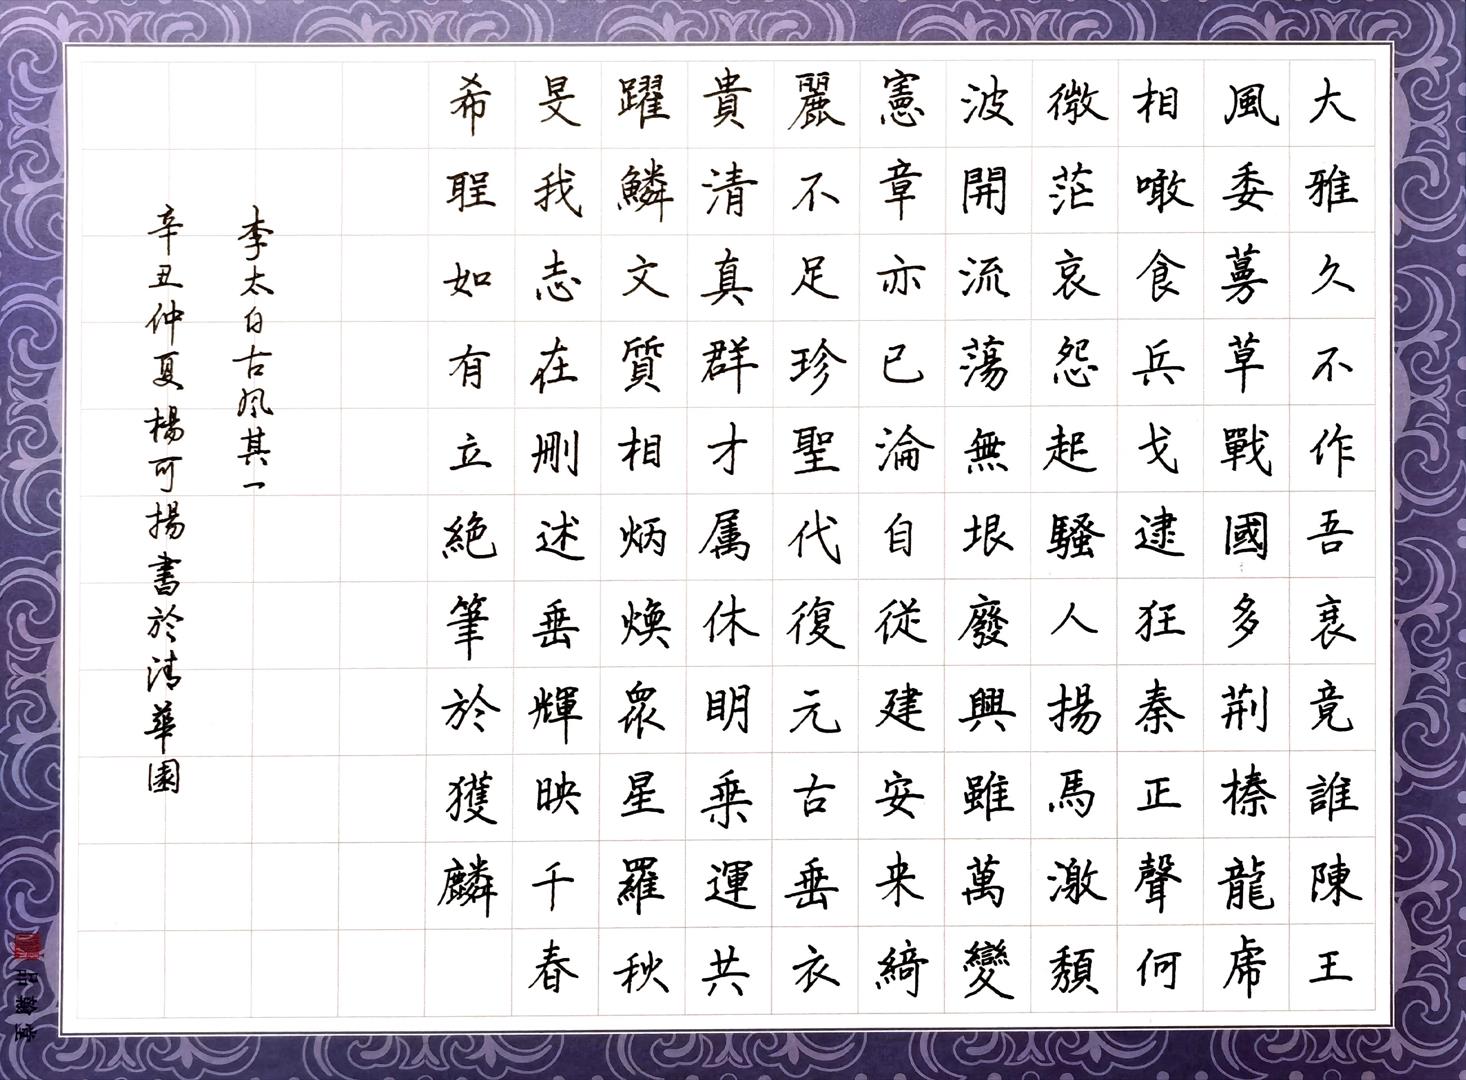 大雅久不作吾衰竟誰陳王
風委蔓草戰國多荆榛龍虎
相噉食兵戈逮狂秦正聲何
微茫哀怨起騷人揚馬激頹
波開流蕩無垠廢興雖萬變
憲章亦已淪自從建安来綺
麗不足珍聖代復元古垂衣
貴清真群才属休明乗運共
躍鱗文質相炳煥眾星羅秋
旻我志在刪述垂輝映千春
希聖如有立絕筆於獲麟
李太白古风其一
辛丑仲夏楊可揚書於清華園